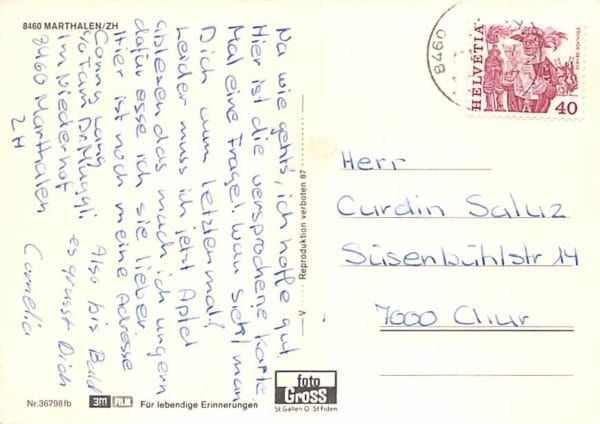 8460 MARTHALEN/ZH
Na wie gehts', ich hoffe gut.
Hier ist die versprochene Karte.
Mal eine Frage! Wan seht man
Dich zum letzten mal?
Leider muss ich jetzt Äpfel
ablesen das mach ich ungern
dafür esse ich sie lieber
Hier ist noch meine Adresse
Conny Lang
c/o Fam Dr. Muggli
Im Niederhof
8460 Marthalen
ZH
Also bis Bald
es grüsst Dich
Cornelia
8460
HELVETIA
ESCALADE GENÈVE
40
Herr
Curdin Saluz
Süsenbühlstr 14
7000 Chur
V
Reproduktion verboten 87
Nr. 36798fb
3M FILM
Für lebendige Erinnerungen
foto
Gross
St Gallen O St Fiden